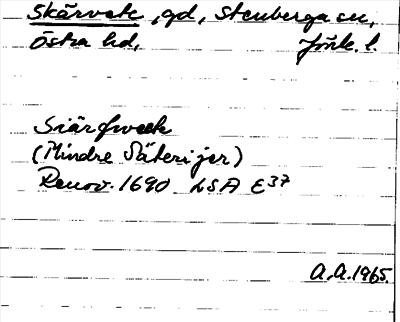 Skärvete, gd, Stenberga sn,
Östra hd, Jönk. l.
Siärfweek
(Mindre Säterijer)
Renov. 1690 LSA E37
A.A. 1965.